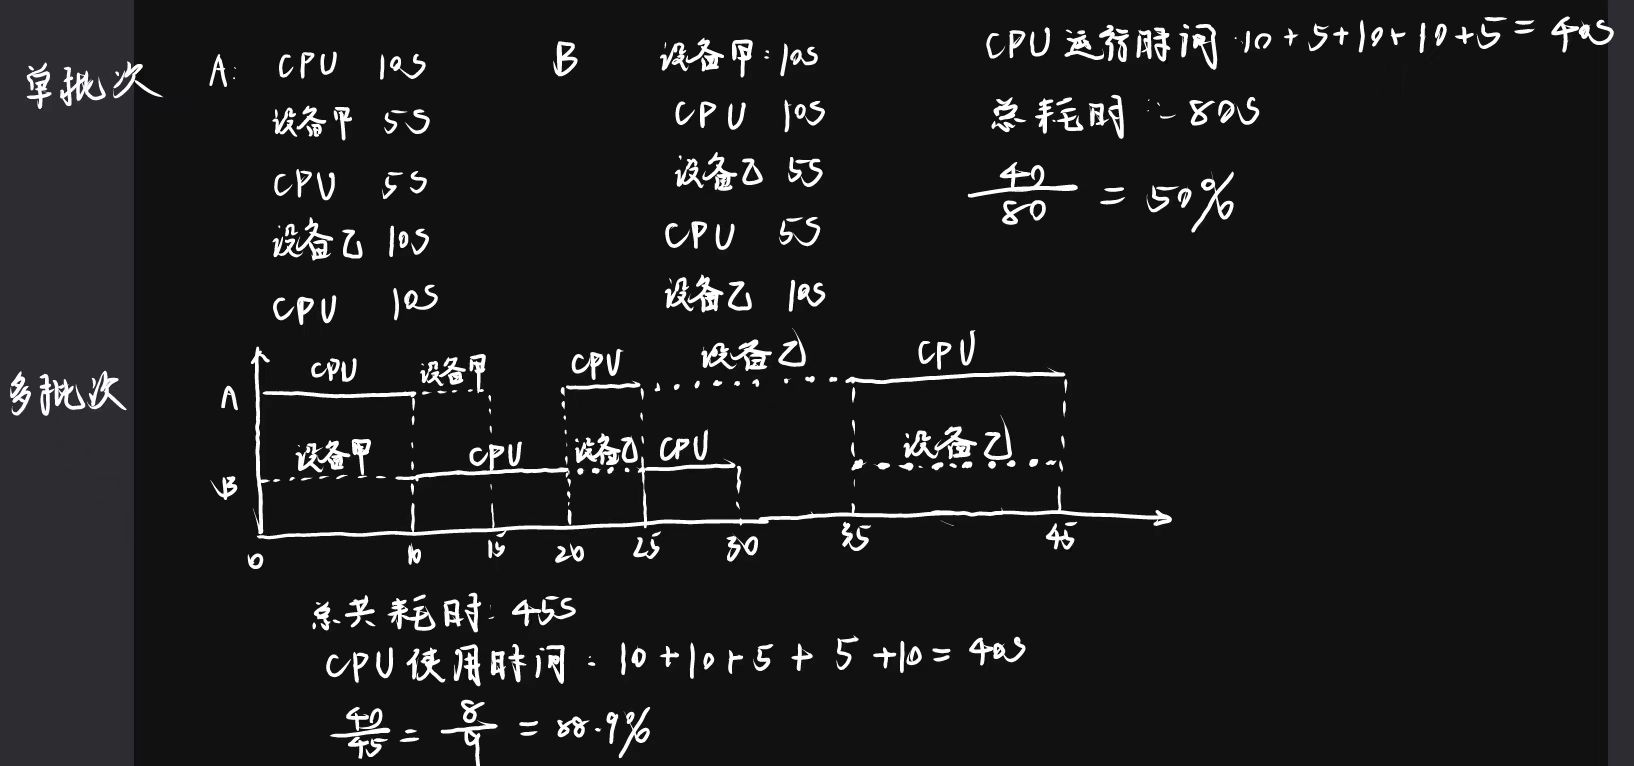 单批次
A: CPU 10S
设备甲 5S
CPU 5S
设备乙 10S
CPU 10S
B 设备甲:10S
CPU 10S
设备乙 5S
CPU 5S
设备乙 10S
CPU运行时间:10+5+10+10+5=40S
总耗时:80S
40/80 = 50%
多批次
CPU 设备甲 CPU 设备乙 CPU
A
设备甲 CPU 设备乙 CPU 设备乙
B
0 10 15 20 25 30 35 45
总共耗时:45S
CPU使用时间:10+10+5+5+10=40S
40/45 = 8/9 = 88.9%